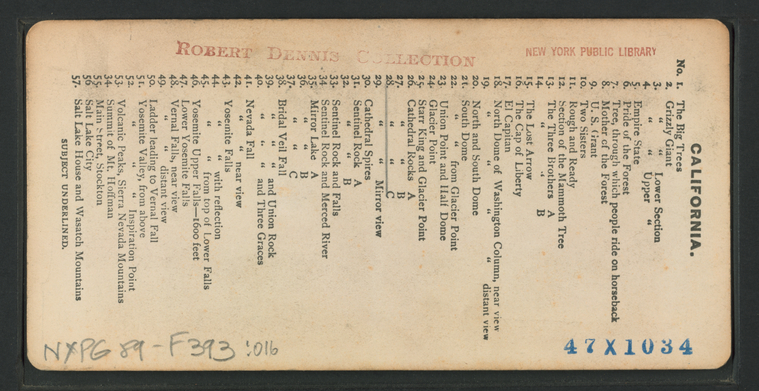 ROBERT DENNIS COLLECTION
NEW YORK PUBLIC LIBRARY
CALIFORNIA.
No. 1. The Big Trees
2. Grizzly Giant
3. " " Lower Section
4. " " Upper "
5. Empire State
6. Pride of the Forest
7. Tree, through which people ride on horseback
8. Mother of the Forest
9. U. S. Grant
10. Two Sisters
11. Rough and Ready
12. Section of the Mammoth Tree
13. The Three Brothers A
14. " " " B
15. The Lost Arrow
16. The Cap of Liberty
17. El Capitan
18. North Dome of Washington Column, near view
19. " " " " distant view
20. North and South Dome
21. South Dome
22. " " from Glacier Point
23. Union Point and Half Dome
24. Glacier Point
25. Starr King and Glacier Point
26. Cathedral Rocks A
27. " " B
28. " " C
29. " " Mirror view
30. Cathedral Spires
31. Sentinel Rock A
32. " " B
33. Sentinel Rock and Falls
34. Sentinel Rock and Merced River
35. Mirror Lake A
36. " " B
37. " " C
38. Bridal Veil Fall
39. " " " and Union Rock
40. " " " and Three Graces
41. Nevada Fall
42. " " near view
43. Yosemite Falls
44. " " with reflection
45. " " from top of Lower Falls
46. Yosemite Upper Falls—1600 feet
47. Lower Yosemite Falls
48. Vernal Falls, near view
49. " " distant view
50. Ladder leading to Vernal Fall
51. Yosemite Valley, from above
52. " " " Inspiration Point
53. Volcanic Peaks, Sierra Nevada Mountains
54. Summit of Mt. Hoffman
55. Main Street, Stockton
56. Salt Lake City
57. Salt Lake House and Wasatch Mountains
SUBJECT UNDERLINED.
47X1034
NYPG 89-F393 :016